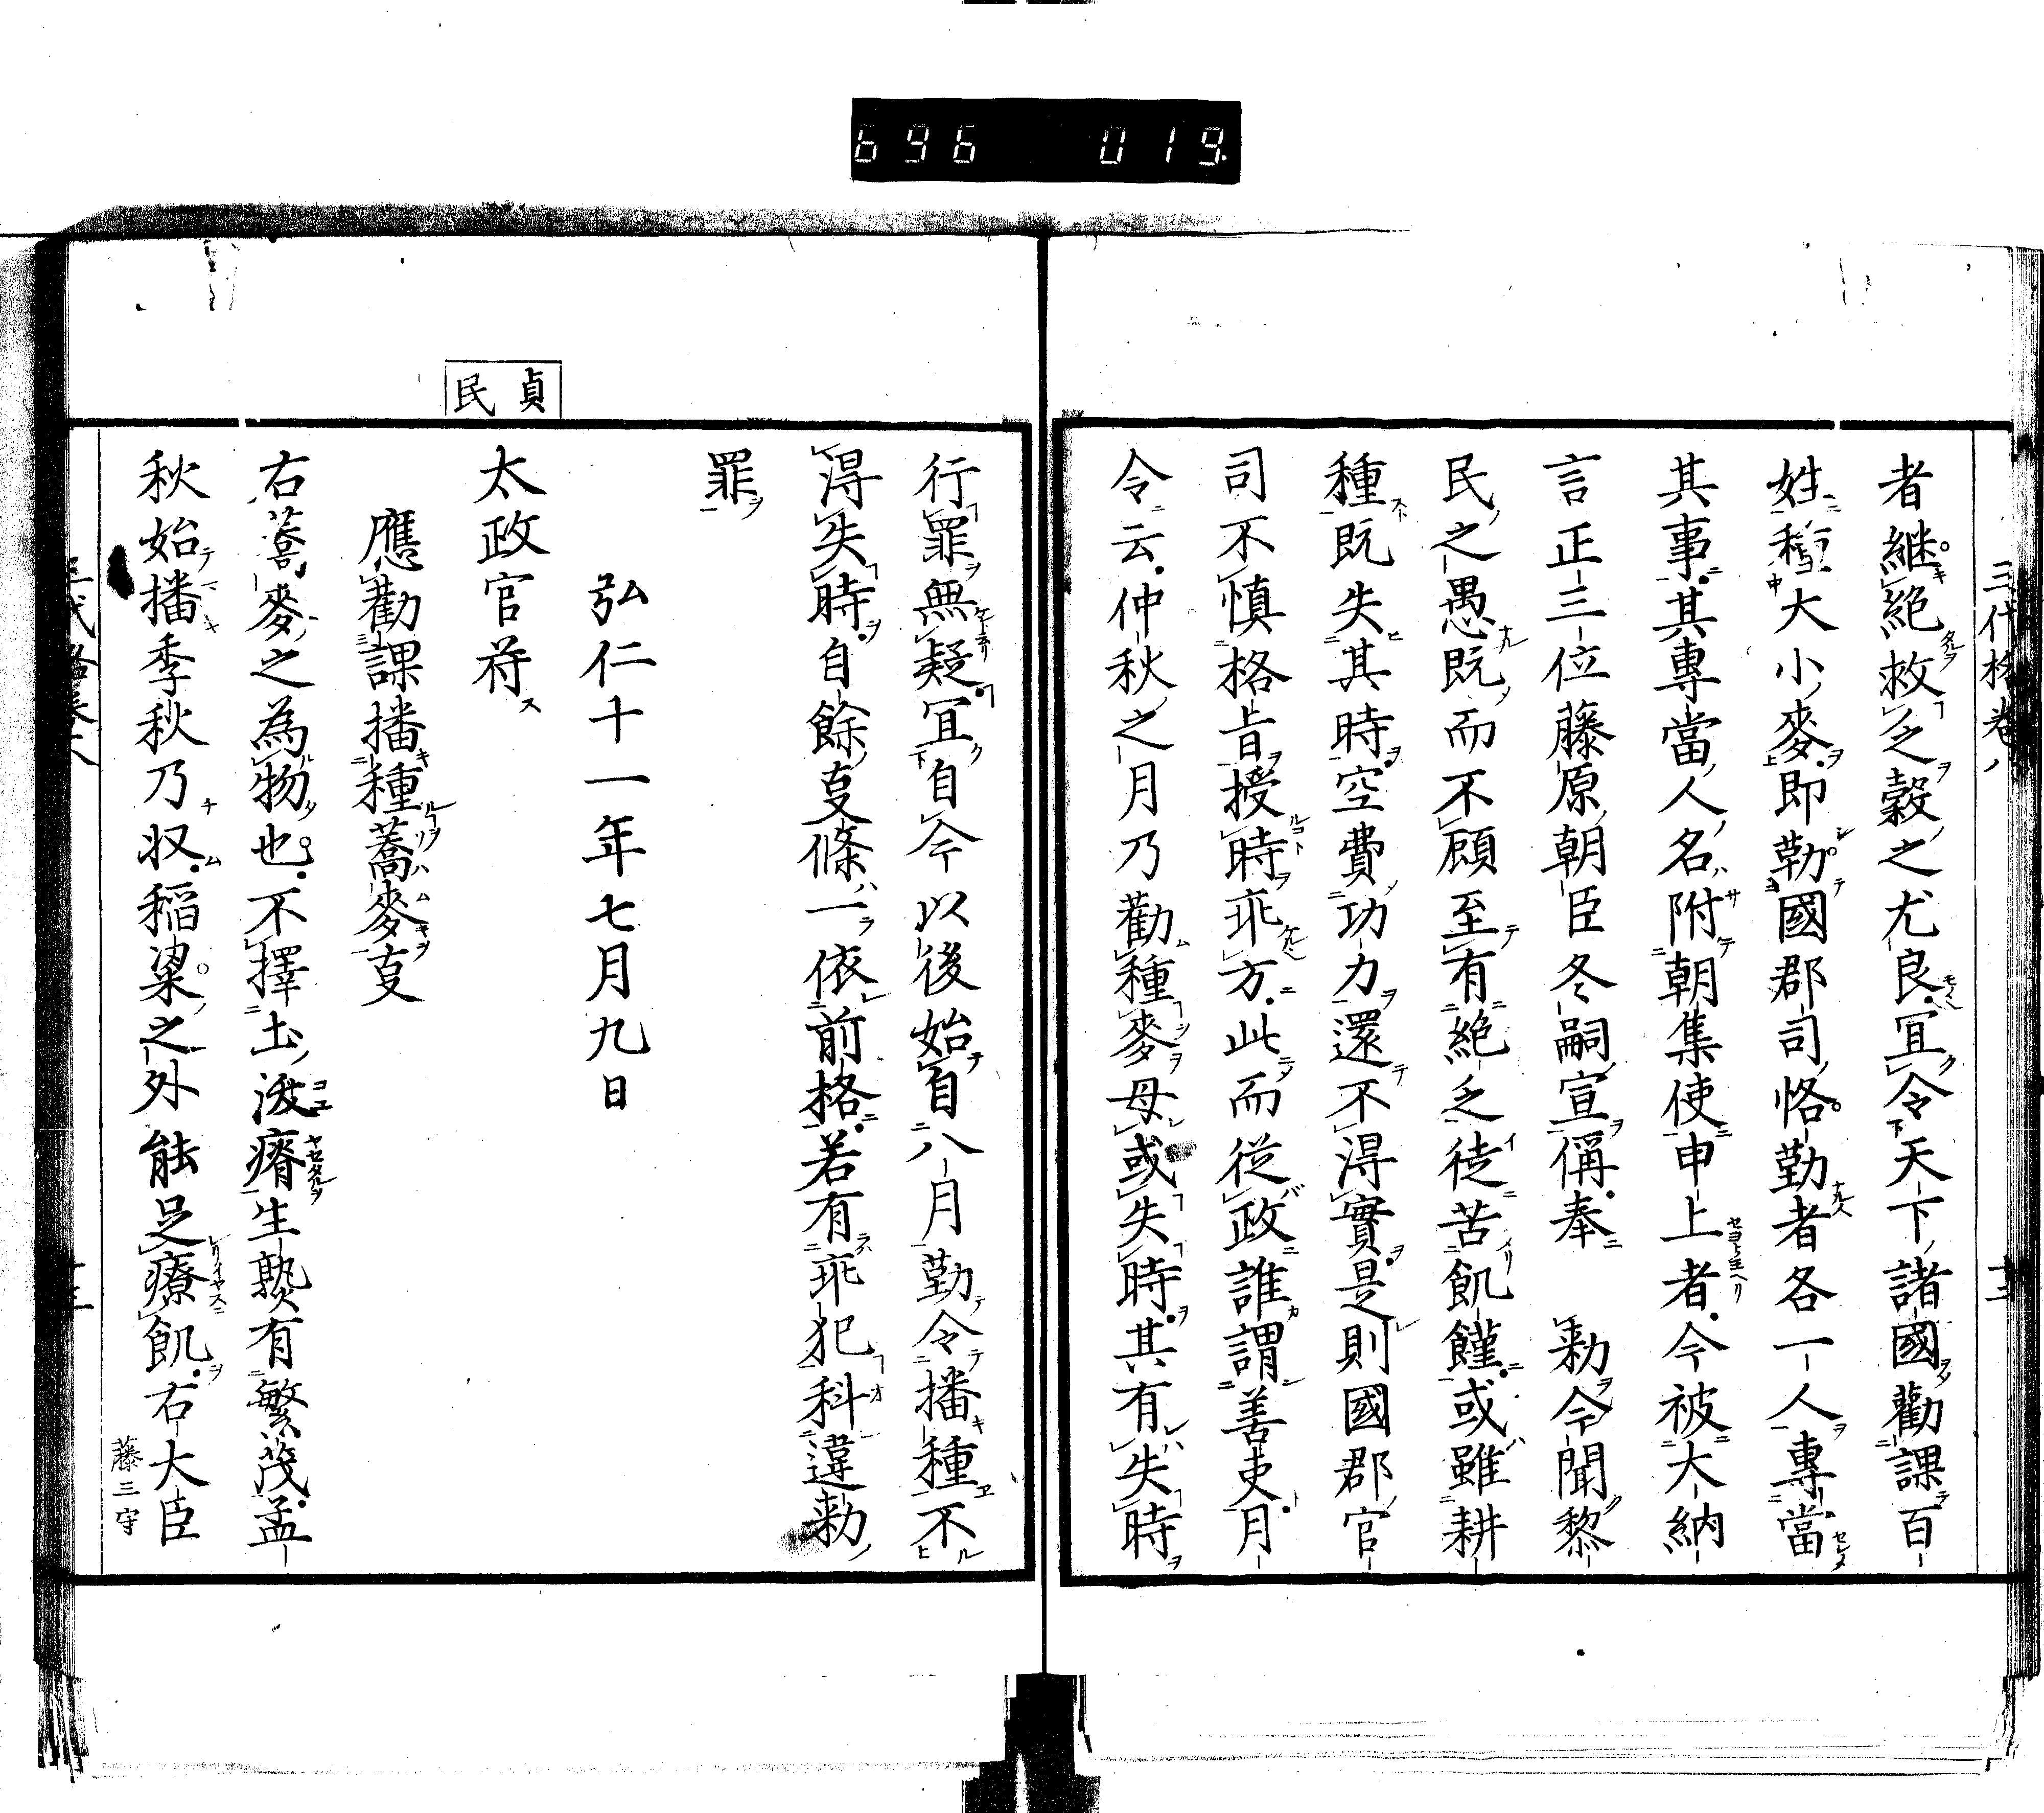 696 019
者継絶救乏穀之尤良冝令天下諸國勸課百
姓種大小麥即勒國郡司恪勤者各一人專當
其事其專當人名附朝集使申上者今被大納
言正三位藤原朝臣冬嗣宣偁奉 勅今聞黎
民之愚既而不顧至有絶乏徒苦飢饉或雖耕
種既失其時空費功力還不淂實是則國郡官
司不慎格旨授時乖方此而從政誰謂善吏月
令云仲秋之月乃勸種麥毋或失時其有失時
行罪無疑冝自今以後始自八月勤令播種不
淂失時自餘叓條一依前格若有乖犯科違勅
罪
弘仁十一年七月九日
貞民
太政官符
應勸課播種蕎麥叓
右蕎麥之為物也不擇土沃瘠生熟有繁茂孟
秋始播季秋乃収稲粱之外能足療飢右大臣
藤三守